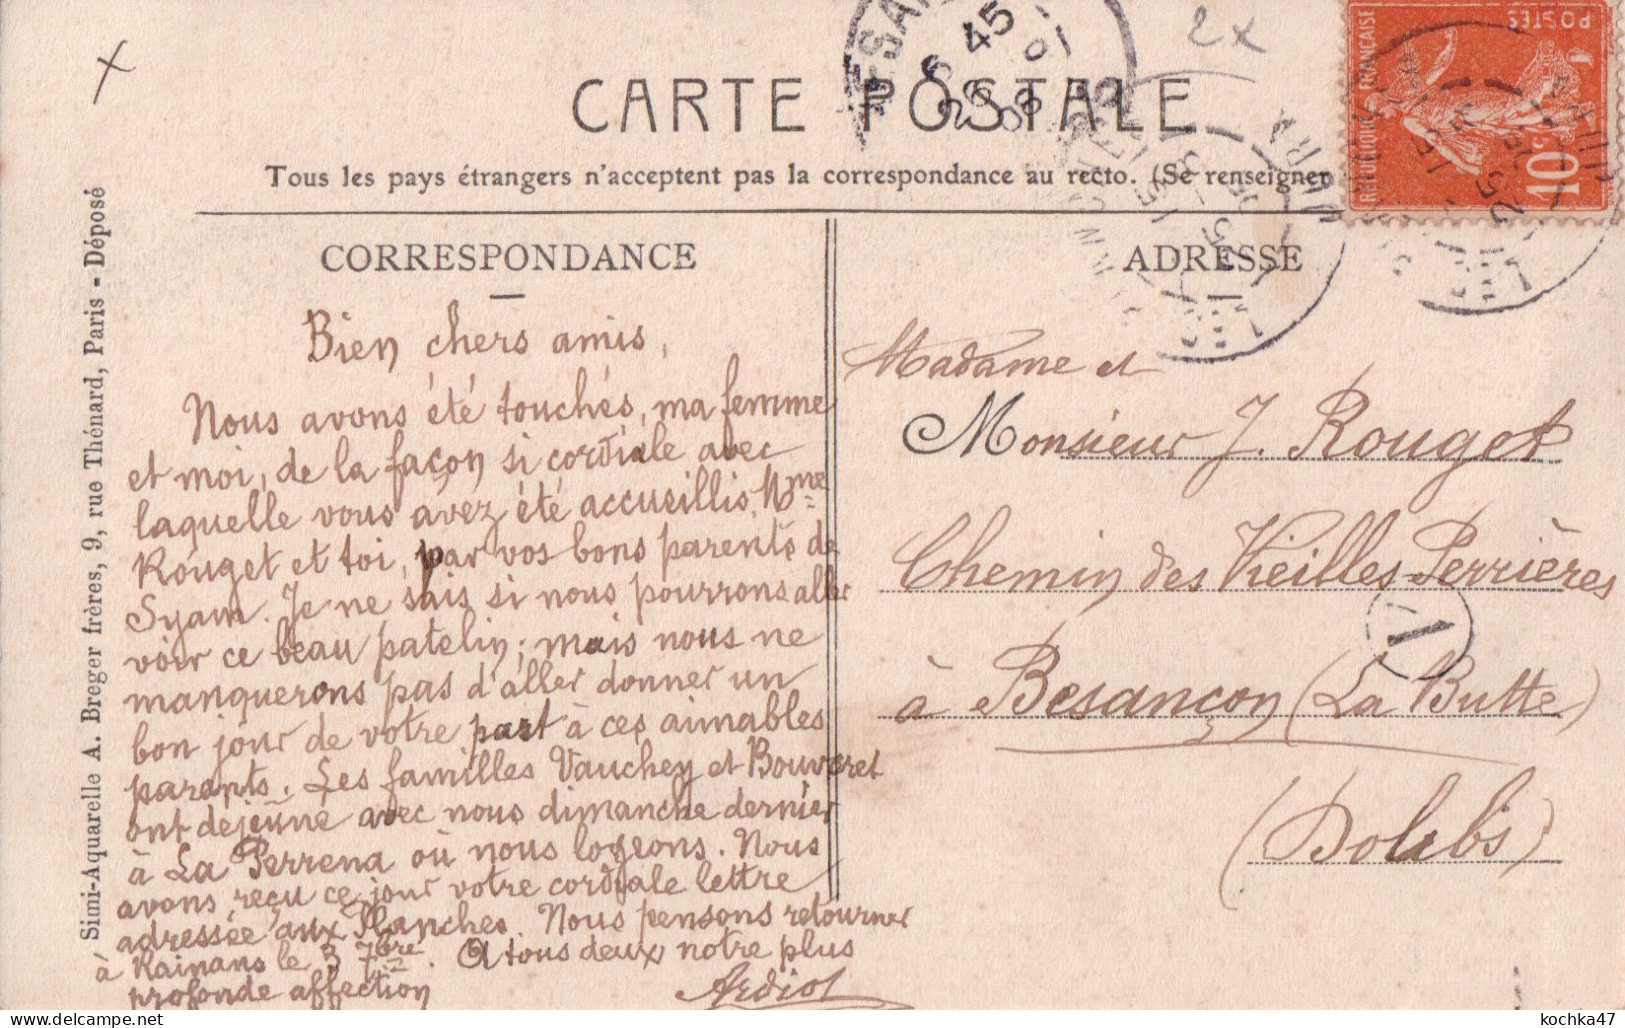 2x
CARTE POSTALE
Tous les pays étrangers n'acceptent pas la correspondance au recto. (Se renseigner
REPUBLIQUE FRANÇAISE
POSTES
10c
Simi-Aquarelle A. Breger frères, 9, rue Thénard, Paris - Déposé
CORRESPONDANCE
Bien chers amis,
Nous avons été touchés, ma femme
et moi, de la façon si cordiale avec
laquelle vous avez été accueillis, Mme
Rouget et toi, par vos bons parents de
Syam. Je ne sais si nous pourrons aller
voir ce beau patelin; mais nous ne
manquerons pas d'aller donner un
bon jour de votre part à ces aimables
parents. Les familles Vauchey et Bouveret
ont déjeûné avec nous dimanche dernier
à La Perrena où nous logeons. Nous
avons reçu ce jour votre cordiale lettre
adressée aux Planches. Nous pensons retourner
à Rainans le 3 7bre. A tous deux notre plus
profonde affection
Ardiot
ADRESSE
Madame et
Monsieur J. Rouget
Chemin des Vieilles-Perrières
à Besançon (La Butte)
(Doubs)
kochka47